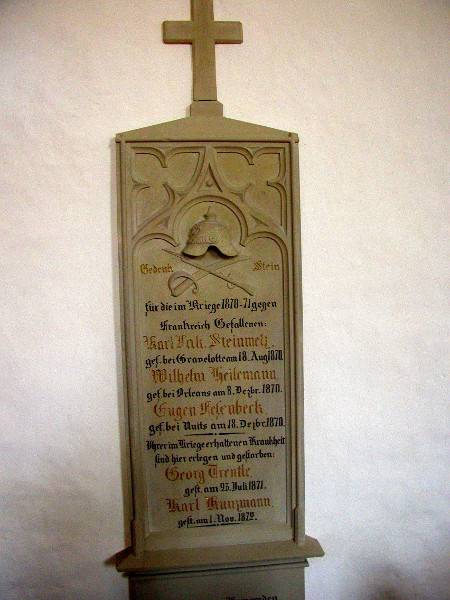 Gedenk Stein
für die im Kriege 1870-71 gegen
Frankreich Gefallenen:
Karl Jak. Steinmetz,
gef. bei Gravelotte am 18. Aug 1870.
Wilhelm Heilemann,
gef. bei Orleans am 8. Dezbr. 1870.
Eugen Fesenbeck,
gef. bei Nuits am 18. Dezbr. 1870.
Ihrer im Kriege erhaltenen Krankheit
sind hier erlegen und gestorben:
Georg Trentle,
gest. am 25. Juli 1871.
Karl Kunzmann,
gest. am 1. Nov. 1872.